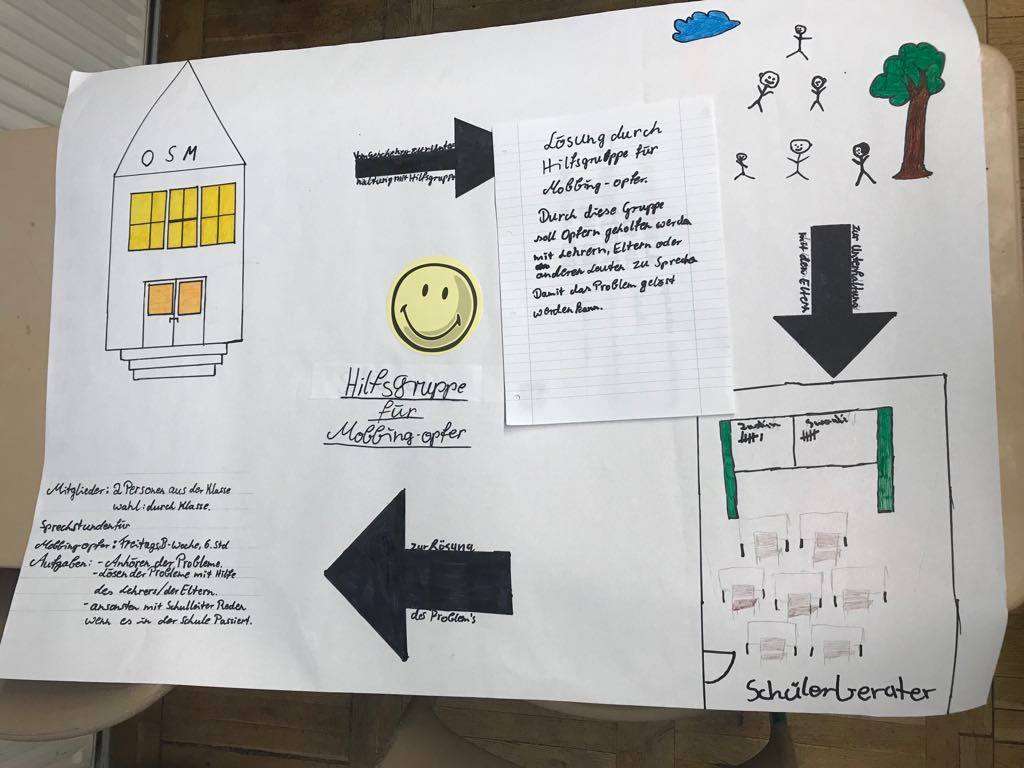 OSM
haltung mit Hilfsgruppe
Lösung durch
Hilfsgruppe für
Mobbing-opfer.
Durch diese Gruppe
soll Opfern geholfen werden
mit Lehrern, Eltern oder
anderen Leuten zu Sprechen
Damit das Problem gelöst
werden kann.
zur Unterhaltung
mit den Eltern
Hilfsgruppe
für
Mobbing-opfer
Mitglieder: 2 Personen aus der Klasse
wahl: durch Klasse.
Sprechstunden für
Mobbing-opfer: Freitags B-Woche, 6. Std
Aufgaben: - Anhören der Probleme.
- Lösen der Probleme mit Hilfe
des Lehrers/der Eltern.
- ansonsten mit Schulleiter Reden
wenn es in der Schule Passiert.
zur Lösung
des Problem's
Schülerberater